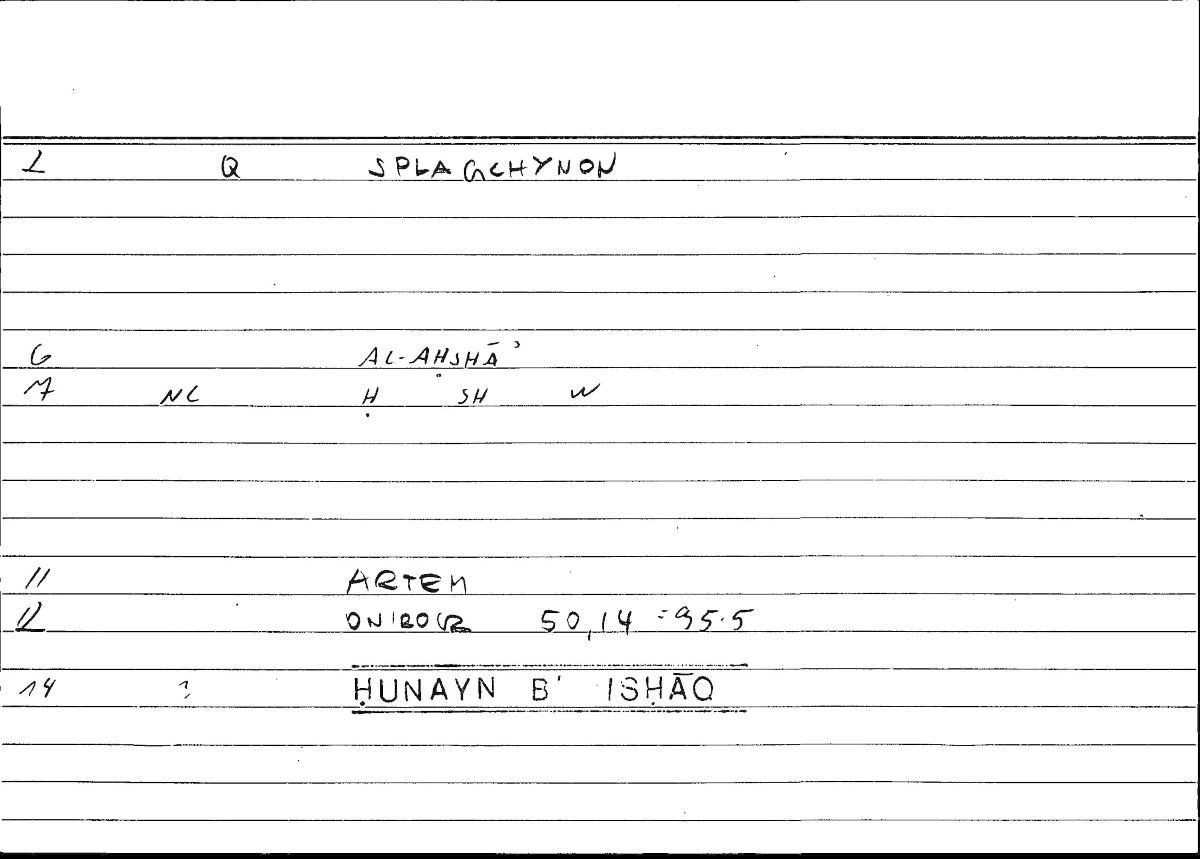 1 Q SPLAGCHYNON
6 AL-AḤSHĀʾ
7 NL Ḥ SH W
11 ARTEM
12 ONIROCR 50,14 = 95.5
14 ? ḤUNAYN B' ISḤĀQ